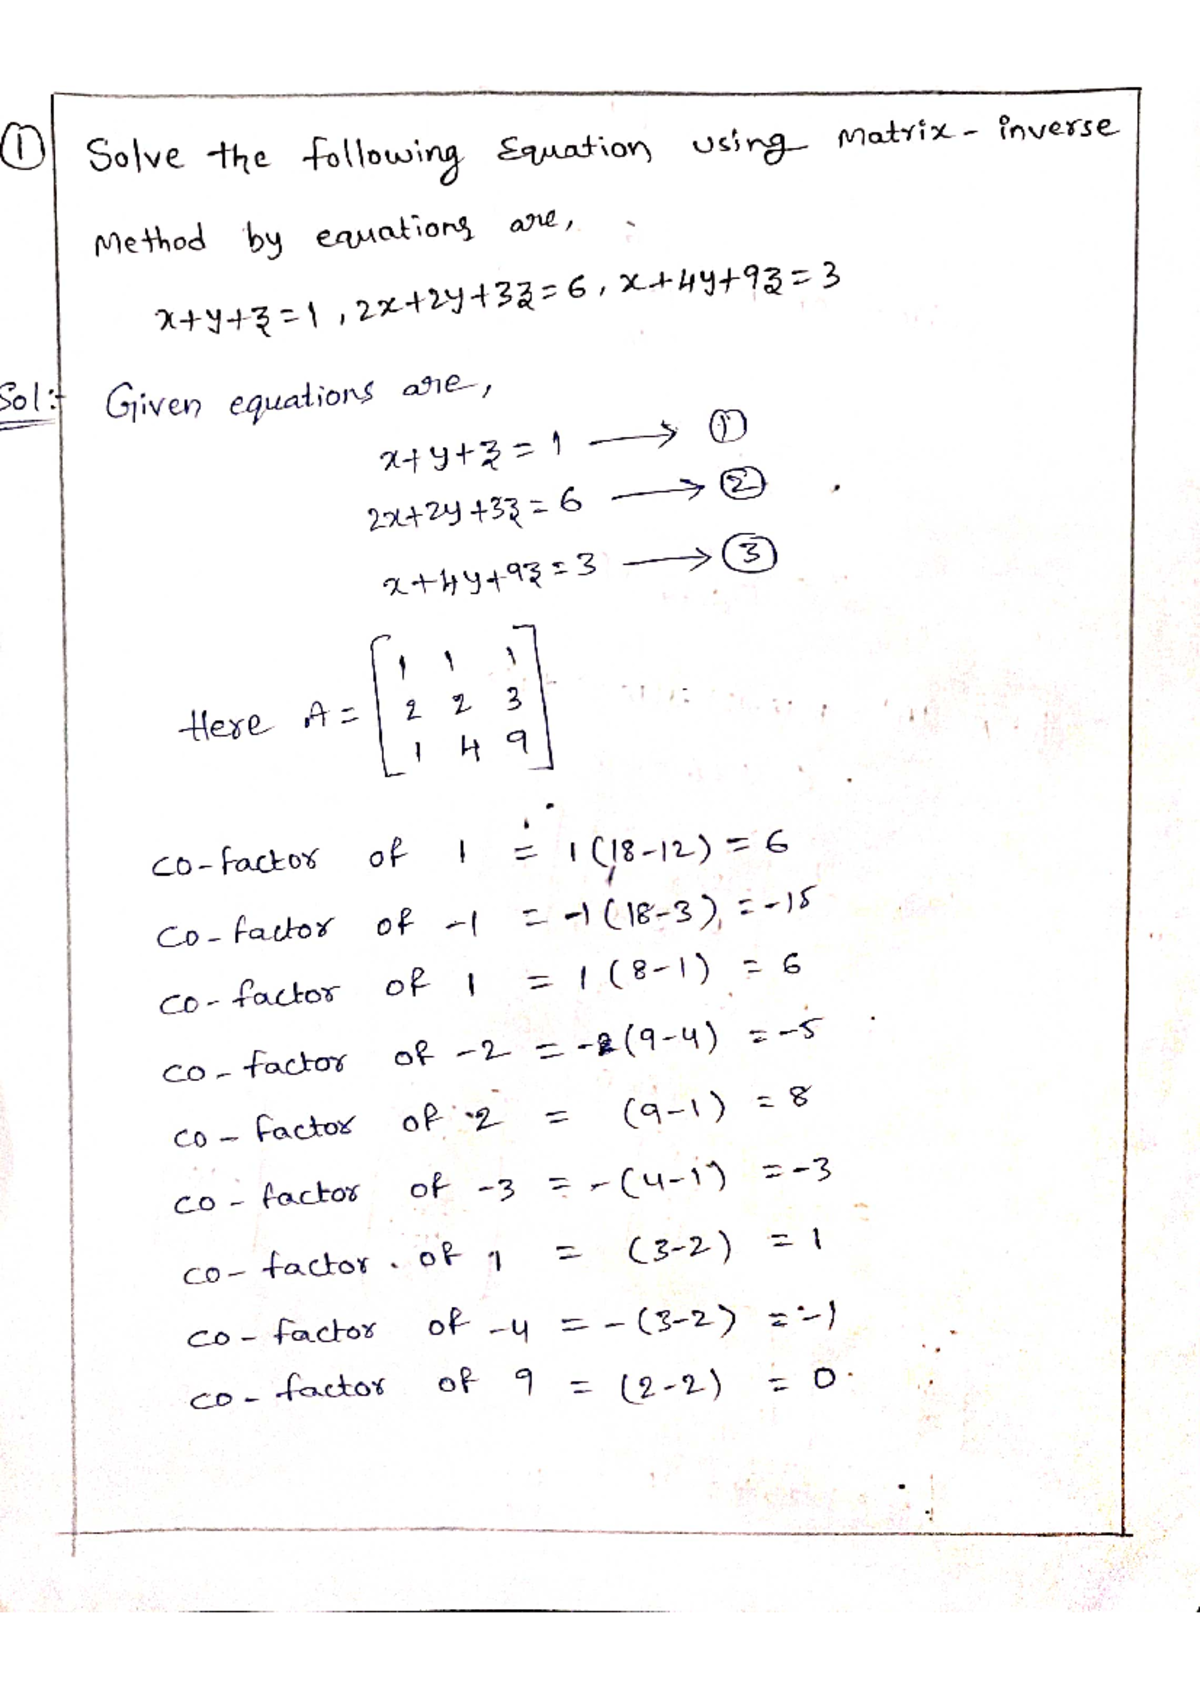 ① Solve the following Equation using Matrix - inverse
Method by equations are,
x+y+z = 1 , 2x+2y+3z = 6 , x+4y+9z = 3
Sol:- Given equations are,
x+y+z = 1 ⟶ ①
2x+2y+3z = 6 ⟶ ②
x+4y+9z = 3 ⟶ ③
Here A = [1 1 1
2 2 3
1 4 9]
co-factor of 1 = 1(18-12) = 6
co-factor of -1 = -1(18-3) = -15
co-factor of 1 = 1(8-1) = 6
co-factor of -2 = -(9-4) = -5
co-factor of 2 = (9-1) = 8
co-factor of -3 = -(4-1) = -3
co-factor of 1 = (3-2) = 1
co-factor of -4 = -(3-2) = -1
co-factor of 9 = (2-2) = 0.